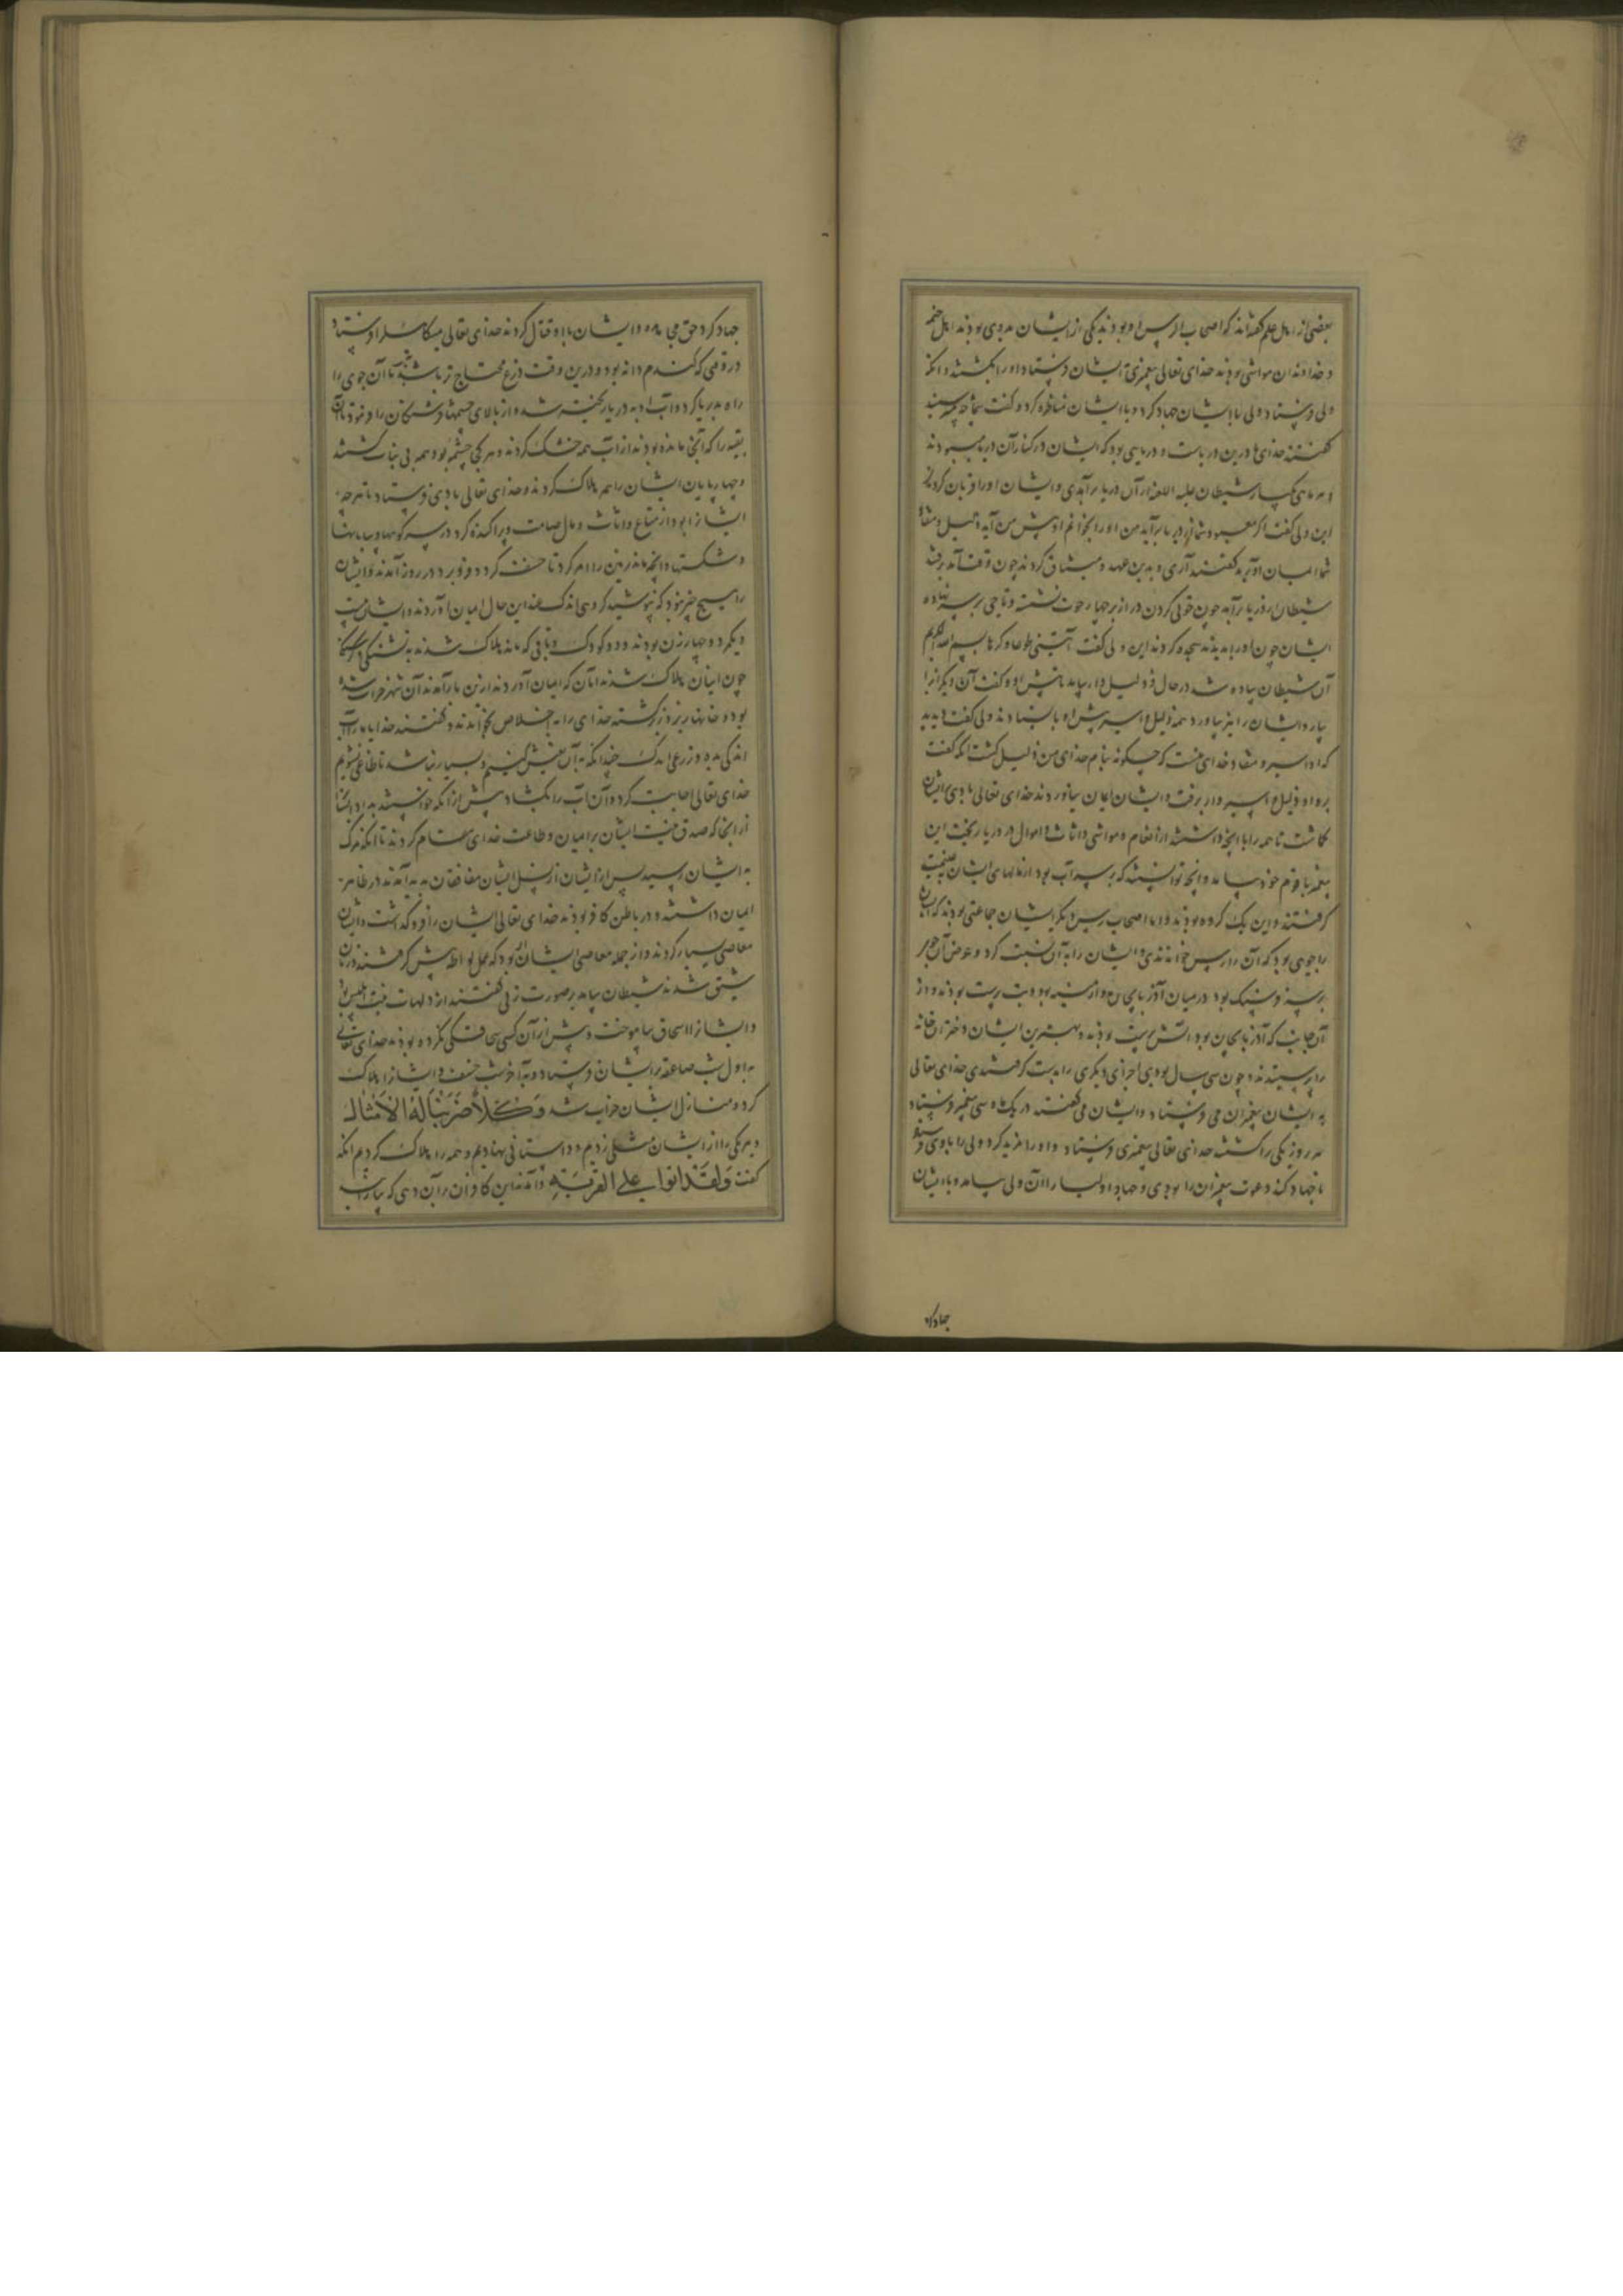 بعضی از اهل علم گفته‌اند که اصحاب الرس دو بودند یکی از ایشان بدوی بودند اهل خیمه
و خداوندان مواشی بودند خدای تعالی پیغمبری به ایشان فرستاد او را بکشتند و آنکه
ولی فرستاد ولی با ایشان جهاد کرد و با ایشان مناظره کرد و گفت شما چه می‌پرستید
گفتند خدای ما درین دریاست و دریایی بود که ایشان در کنار آن دریا می‌بودند
و هر ماهی یکبار شیطان علیه اللعنه از آن دریا برآمدی و ایشان او را قربان کردندی
این ولی گفت اگر معبود شما از دریا برآید من او را بخوانم او پیش من آید ذلیل و منقاد
شما ایمان آورید گفتند آری و بدین عهد و میثاق کردند چون وقت آمد برفتند
شیطان از دریا برآمد چون خوکی گردن دراز بر چهار حوت نشسته و تاجی بر سر نهاده
ایشان چون او را بدیدند سجده کردند این ولی گفت آتینی طوعا و کرها بسم الله الکریم
آن شیطان پیاده شد در حال و ذلیل وار بیامد تا پیش او و گفت آن دیگر را
بیار و ایشان را نیز بیاورد همه ذلیل و اسیر پیش او بایستادند ولی گفت دیدید
که او اسیر و منقاد خدای منست که چگونه بنام خدای من ذلیل گشت آنکه گفت
برو او ذلیل و اسیر وار برفت و ایشان ایمان نیاوردند خدای تعالی بادی بر ایشان
گماشت تا همه را با آنچه داشتند از انعام و مواشی و اثاث و اموال در دریا ریخت این
پیغمبر با قوم خود بیامد و آنچه توانستند که بر سر آب بود از مالهای ایشان بغنیمت
گرفتند و این یک گروه بودند و اما اصحاب رس دیگر ایشان جماعتی بودند که ایشان
را جویی بود که آن را رس خواندندی و ایشان را به آن نسبت کرد و عرض آن جوی
بر سه فرسنگ بود در میان آذربایجان و ارمنیه بود و بت پرست بودند و از
آن جانب که آذربایجان بود آتش پرست بودند و بهترین ایشان دختران خانه
را پرستیدند و چون سی سال بودی آخرای دیگری را بدست گرفتندی خدای تعالی
به ایشان پیغمبران می فرستاد و ایشان می کشتند در یک ماه سی پیغمبر فرستاد
هر روز یکی را کشتند خدای تعالی پیغمبری فرستاد و او را مؤید کرد ولی را با وی فرستاد
تا جهاد کند دعوت پیغمبران را بودی و جهاد اولیا را آن ولی بیامد و با ایشان
جهاد کرد
جهاد کرد حق و ایشان با او قتال کردند خدای تعالی میکائیل را فرستاد
در وقتی که گندم دانه بود و درین وقت زرع محتاج تر باشند تا آن جوی را
راه بدریا کرد و آب او به دریا ریخته شد و از بالای چشمها فرشتگان را فرمود تا آن
بقیه را که آنجا مانده بودند از آب همه خشک کردند و هر کجا چشمه بود همه بی نبات گشتند
و چهارپایان ایشان را همه هلاک کردند و خدای تعالی بادی فرستاد تا هر چه
ایشان را بود از متاع و اثاث و مال صامت و پراکنده کرد در سر کوهها و بیابانها
و شکستها و آنچه ماند زمین را امر کرد تا خسف کرد و فرو برد در روز آمدند و ایشان
را هیچ چیز نبود که بپوشند گروهی اندک عند این حال ایمان آوردند و ایشان بیست
و یکمرد و چهار زن بودند و دو کودک و باقی که ماند هلاک شدند به تشنگی و گرسنگی
چون اینان هلاک شدند آنان که ایمان آوردند از تن باز آمدند آن شهر خراب شده
بود و خانها زیر و زبر گشته خدای را به اخلاص بخواندند و گفتند خدایا ما را آب
اندکی بده و زرعی اندک چندانکه به آن تعیش کنیم و بسیار نباشد تا طاغی نشویم
خدای تعالی اجابت کرد و آن آب را بگشاد بیش از آنکه خواستند بداد ایشان را
از آنجا که صدق نیت ایشان بر ایمان و طاعت خدای تمام کردند تا آنکه مرگ
به ایشان رسید پس از ایشان از نسل ایشان منافقان پدید آمدند در ظاهر
ایمان داشتند و در باطن کافر بودند خدای تعالی ایشان را فرو گذاشت و ایشان
معاصی بسیار کردند و از جمله معاصی ایشان بود که عمل لواطه پیش گرفتند زنان
شبق شدند شیطان بیامد بر صورت زنی گفتند او دلهات بنت ابلیس بود
و ایشان را سحاق بیاموخت و پیش از آن کسی سحاقگی نکرده بود خدای تعالی
به اول شب صاعقه بر ایشان فرستاد و به آخر شب خسف و ایشان را هلاک
کرد و منازل ایشان خراب شد وَكُلًّا ضَرَبْنَا لَهُ الْأَمْثَالَ
و هر یکی را از ایشان مثلی زدیم و داستانی نهادیم و همه را هلاک کردیم آنکه
گفت وَلَقَدْ أَتَوْا عَلَى الْقَرْيَةِ و آمدند این کافران را آن دهی که بباران